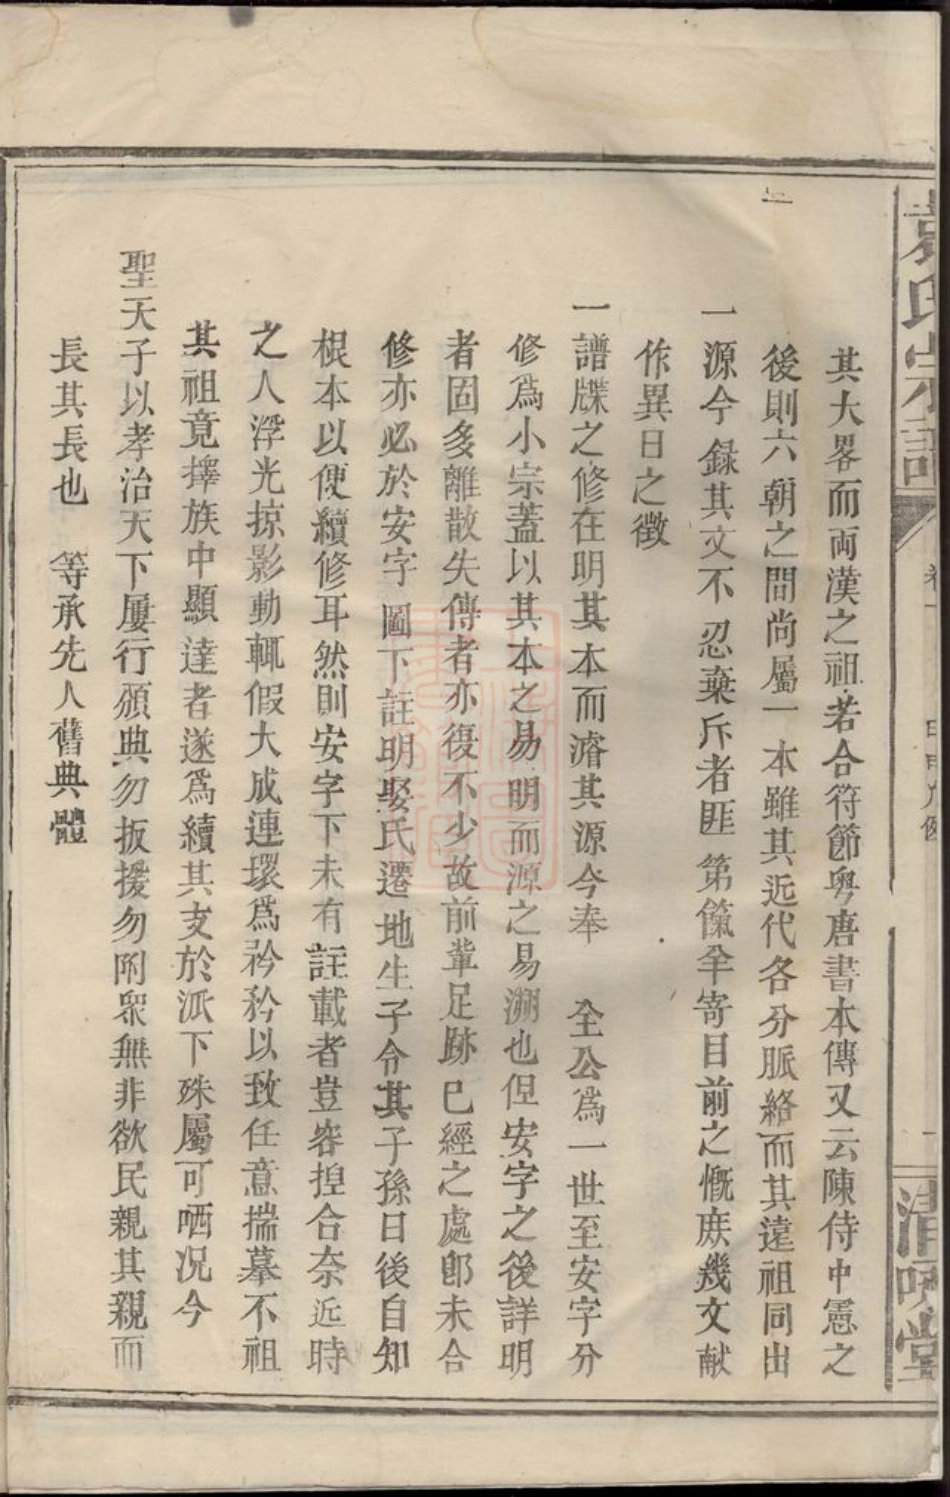 袁氏宗譜
卷一
清
堂
其大畧而兩漢之祖若合符節粵唐書本傳又云陳侍中憲之
後則六朝之間尚屬一本雖其近代各分脈絡而其遠祖同出
一源今録其文不忍棄斥者匪第篋笥寄目前之慨庶幾文献
作異日之徵
一譜牒之修在明其本而濬其源今奉 全公爲一世至安字分
修爲小宗蓋以其本之易明而源之易溯也但安字之後詳明
者固多離散失傳者亦復不少故前輩足跡已經之處卽未合
修亦必於安字圖下註明娶氏遷地生子令其子孫日後自知
根本以便續修耳然則安字下未有註載者豈容揑合奈近時
之人浮光掠影動輒假大成連環爲衿矜以致任意揣摹不祖
其祖竟擇族中顯達者遂爲續其支於派下殊屬可哂况今
聖天子以孝治天下屢行頒典勿扳援勿附衆無非欲民親其親而
長其長也 等承先人舊典體